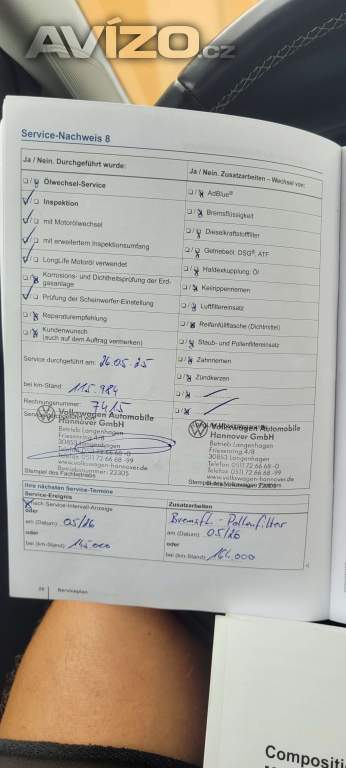 AVÍZO.cz
Service-Nachweis 8
Ja / Nein. Durchgeführt wurde:
Ölwechsel-Service
Inspektion
mit Motorölwechsel
mit erweitertem Inspektionsumfang
LongLife Motoröl verwendet
Korrosions- und Dichtheitsprüfung der Erd-
gasanlage
Prüfung der Scheinwerfer-Einstellung
Reparaturempfehlung
Kundenwunsch
(auch auf dem Auftrag vermerken)
Service durchgeführt am: 26.05.25
bei km-Stand: 115.984
Rechnungsnummer: 7415
Volkswagen Automobile
Hannover GmbH
Betrieb Langenhagen
Friesenring 4/8
30853 Langenhagen
Telefon 0511 72 66 68 -0
Telefax 0511 72 66 68 -99
www.volkswagen-hannover.de
Betriebsnummer: 22305
Stempel des Fachbetriebs
Ja / Nein. Zusatzarbeiten – Wechsel von:
AdBlue®
Bremsflüssigkeit
Dieselkraftstofffilter
Getriebeöl: DSG®, ATF
Haldexkupplung: Öl
Keilrippenriemen
Luftfiltereinsatz
Reifenfülflasche (Dichtmittel)
Staub- und Pollenfiltereinsatz
Zahnriemen
Zündkerzen
Volkswagen Automobile
Hannover GmbH
Betrieb Langenhagen
Friesenring 4/8
30853 Langenhagen
Telefon 0511 72 66 68 -0
Telefax 0511 72 66 68 -99
www.volkswagen-hannover.de
Ihre nächsten Service-Termine
Service-Ereignis
nach Service-Intervall-Anzeige
oder
am (Datum): 05/26
oder
bei (km-Stand): 145.000
Zusatzarbeiten
Bremsfl. - Pollenfilter
am (Datum): 05/26
oder
bei (km-Stand): 164.000
Serviceplan
Composition